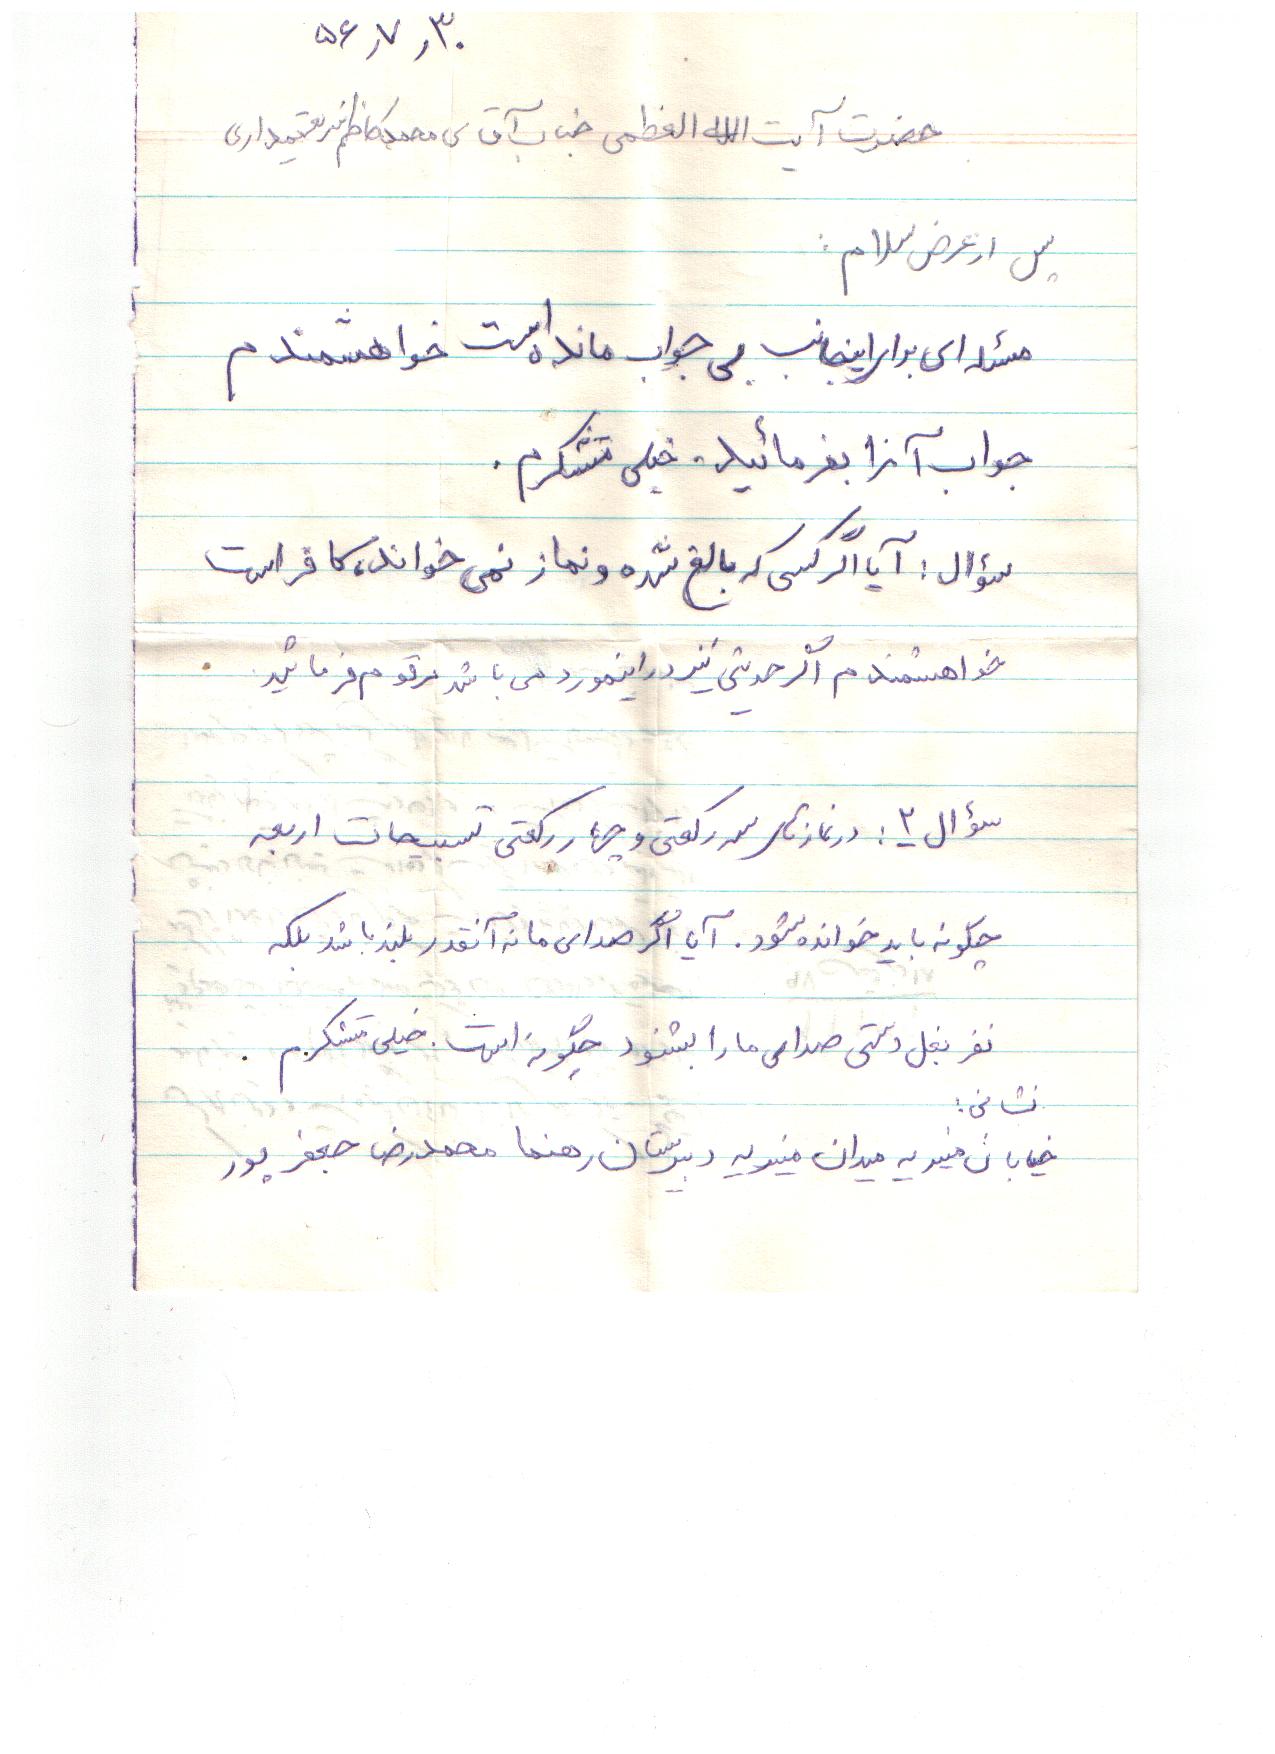 ۵۶ر۷ر۳۰
حضرت آیت الله العظمی جناب آقای محمدکاظم شریعتمداری
پس از عرض سلام :
مسئله ای برای اینجانب بی جواب مانده است خواهشمندم
جواب آنرا بفرمائید. خیلی متشکرم .
سؤال : آیا اگر کسی که بالغ شده و نماز نمی خواند، کافر است
خواهشمندم اگر حدیثی نیز در اینمورد می باشد مرقوم فرمائید.
سؤال ۲ : در نمازهای سه رکعتی و چهار رکعتی تسبیحات اربعه
چگونه باید خوانده شود. آیا اگر صدای ما نه آنقدر بلند باشد بلکه
نفر بغل دستی صدای ما را بشنود چگونه است. خیلی متشکرم .
نشانی :
خیابان میدان دبیرستان رهنما محمدرضا جعفرپور